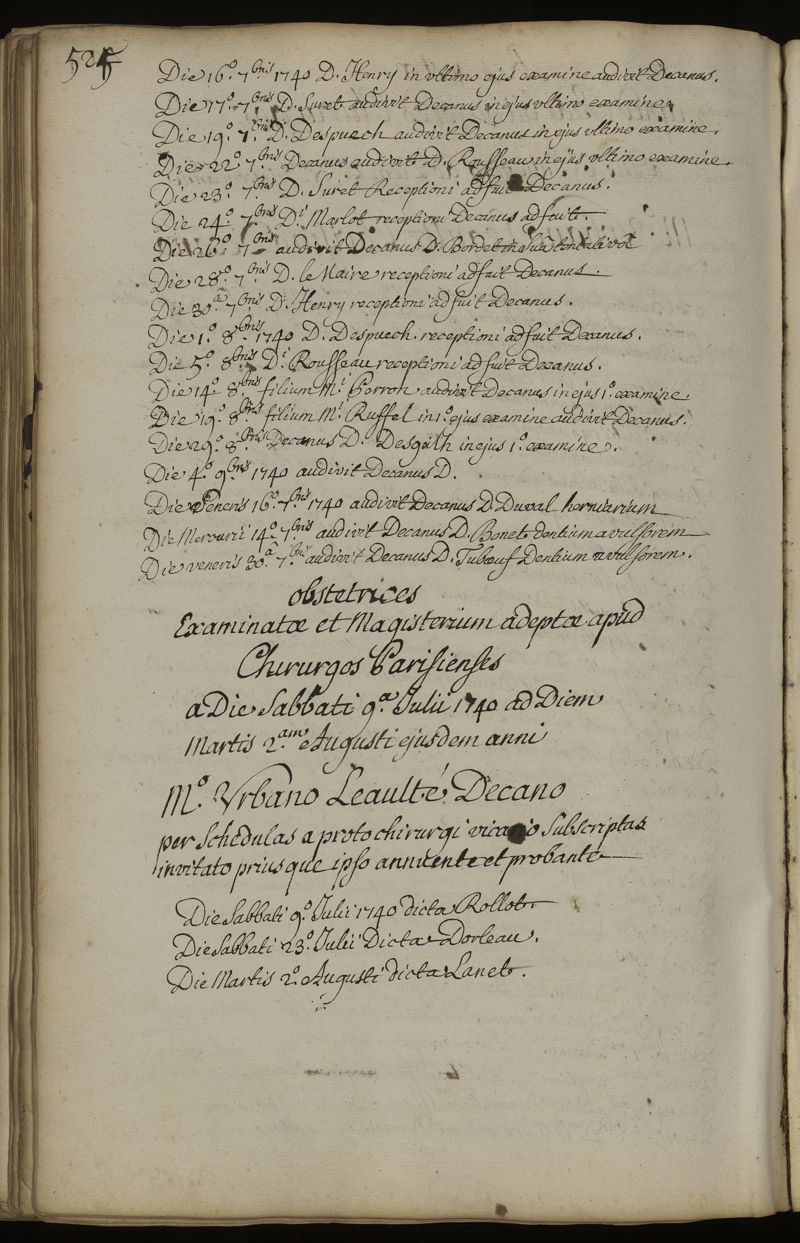 525
Die 16.º 7bris 1740 D. Henry in ultimo ejus examine audivit Decanus.
Die 17.º 7bris D. Suret audivit Decanus in ejus ultimo examine.
Die 19.º 7bris D. Despuech audivit Decanus in ejus ultimo examine.
Die 22.º 7bris Decanus audivit D. Rousseau in ejus ultimo examine.
Die 23.º 7bris D. Suret Receptioni adfuit Decanus.
Die 24.º 7bris D.i Marlot receptioni Decanus adfuit.
Die 26.º 7bris audivit Decanus D. Bordet in sua
Die 28.º 7bris D. le Maire receptioni adfuit Decanus.
Die 30.a 7bris D.i Henry receptioni adfuit Decanus.
Die 1.º 8bris 1740 D. Despuech receptioni adfuit Decanus.
Die 5.º 8bris D.i Rousseau receptioni adfuit Decanus.
Die 14.º 8bris filium M.i Perron audivit Decanus in ejus 1.º examine
Die 19.º 8bris filium M.i Ruffel in 1.º ejus examine audivit Decanus.
Die 29.º 8bris Decanus D. in ejus 1.º examine.
Die 4.º 9bris 1740 audivit Decanus D.
Die Veneris 16.º 7bris 1740 audivit Decanus D. Duval herniarium
Die Mercurii 14.º 7bris audivit Decanus D. Bonet dentium avulsorem
Die veneris 30.a 7bris audivit Decanus D. Tubœuf Dentium avulsorem.
obstetrices
Examinatæ et Magisterium adeptæ apud
Chirurgos Parisienses
a Die Sabbati 9.a Julii 1740 ad Diem
Martis 2.am Augusti ejusdem anni
M.º Urbano Leaulté Decano
per Schedulas a protochirurgi vicario Subscriptas
invitato priusque ipso annuente et probante
Die Sabbati 9.º Julii 1740 dicta Rollot
Die Sabbati 23.º Julii Dicta Dorleau.
Die Martis 2.º Augusti dicta Lanet.